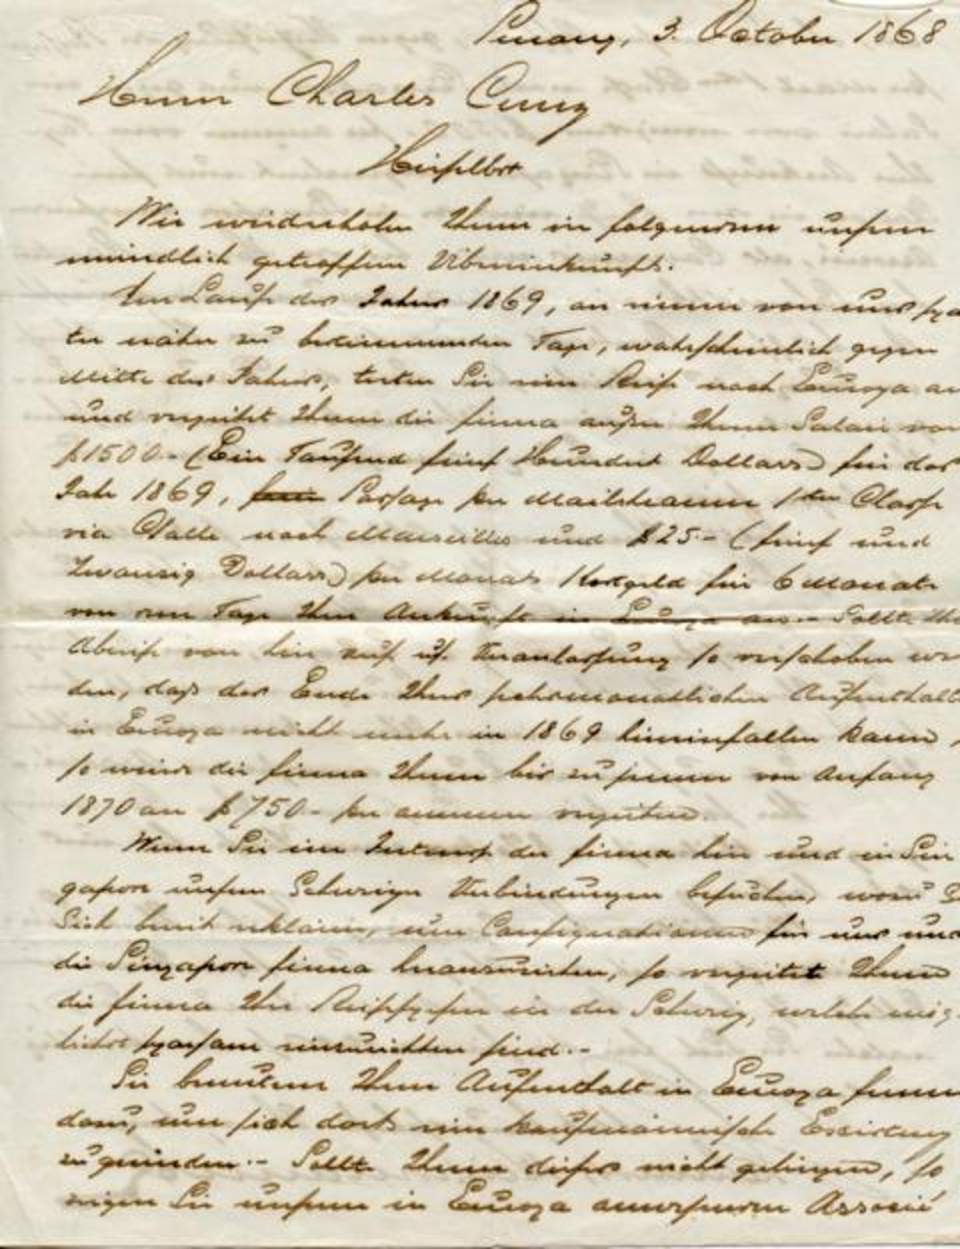 Penang, 3. October 1868
Herrn Charles Cunz
Hieselbst
Wir wiederholen Ihnen in folgendem unsere
mündlich getroffene Übereinkunft.
Im Laufe des Jahres 1869, an einem von uns spä-
ter näher zu bestimmenden Tage, wahrscheinlich gegen
Mitte des Jahres, treten Sie eine Reise nach Europa an
und vergütet Ihnen die Firma außer Ihrem Salair von
$1500.- (Ein Tausend fünf Hundert Dollars) für das
Jahr 1869, Passage per Mailsteamer 1ter Classe
via Galle nach Marseilles und $25.- (fünf und
Zwanzig Dollars) per Monat Kostgeld für 6 Monate
von dem Tage Ihrer Ankunft in Europa an.- Sollte Ihre
Abreise von hier auf Veranlassung so verschoben wer-
den, daß das Ende Ihres sechsmonatlichen Aufenthalts
in Europa nicht mehr in 1869 hineinfallen kann,
so wird die Firma Ihnen bis zu jenem von Anfang
1870 an $750.- per annum vergüten.
Wenn Sie im Interesse der Firma hier und in Sin-
gapore unsere Schweizer Verbindungen besuchen, wozu Sie
Sich bereit erklären, um Consignationen für uns und
die Singapore Firma heranzuziehen, so vergütet Ihnen
die Firma Ihre Reisespesen in der Schweiz, welche mög-
lichst sparsam einzurichten sind.-
Sie benutzen Ihren Aufenthalt in Europa ferner
dazu, um sich dort eine kaufmännische
zu gründen.- Sollte Ihnen dieses nicht gelingen, so
zeigen Sie unserem in Europa anwesenden Associé